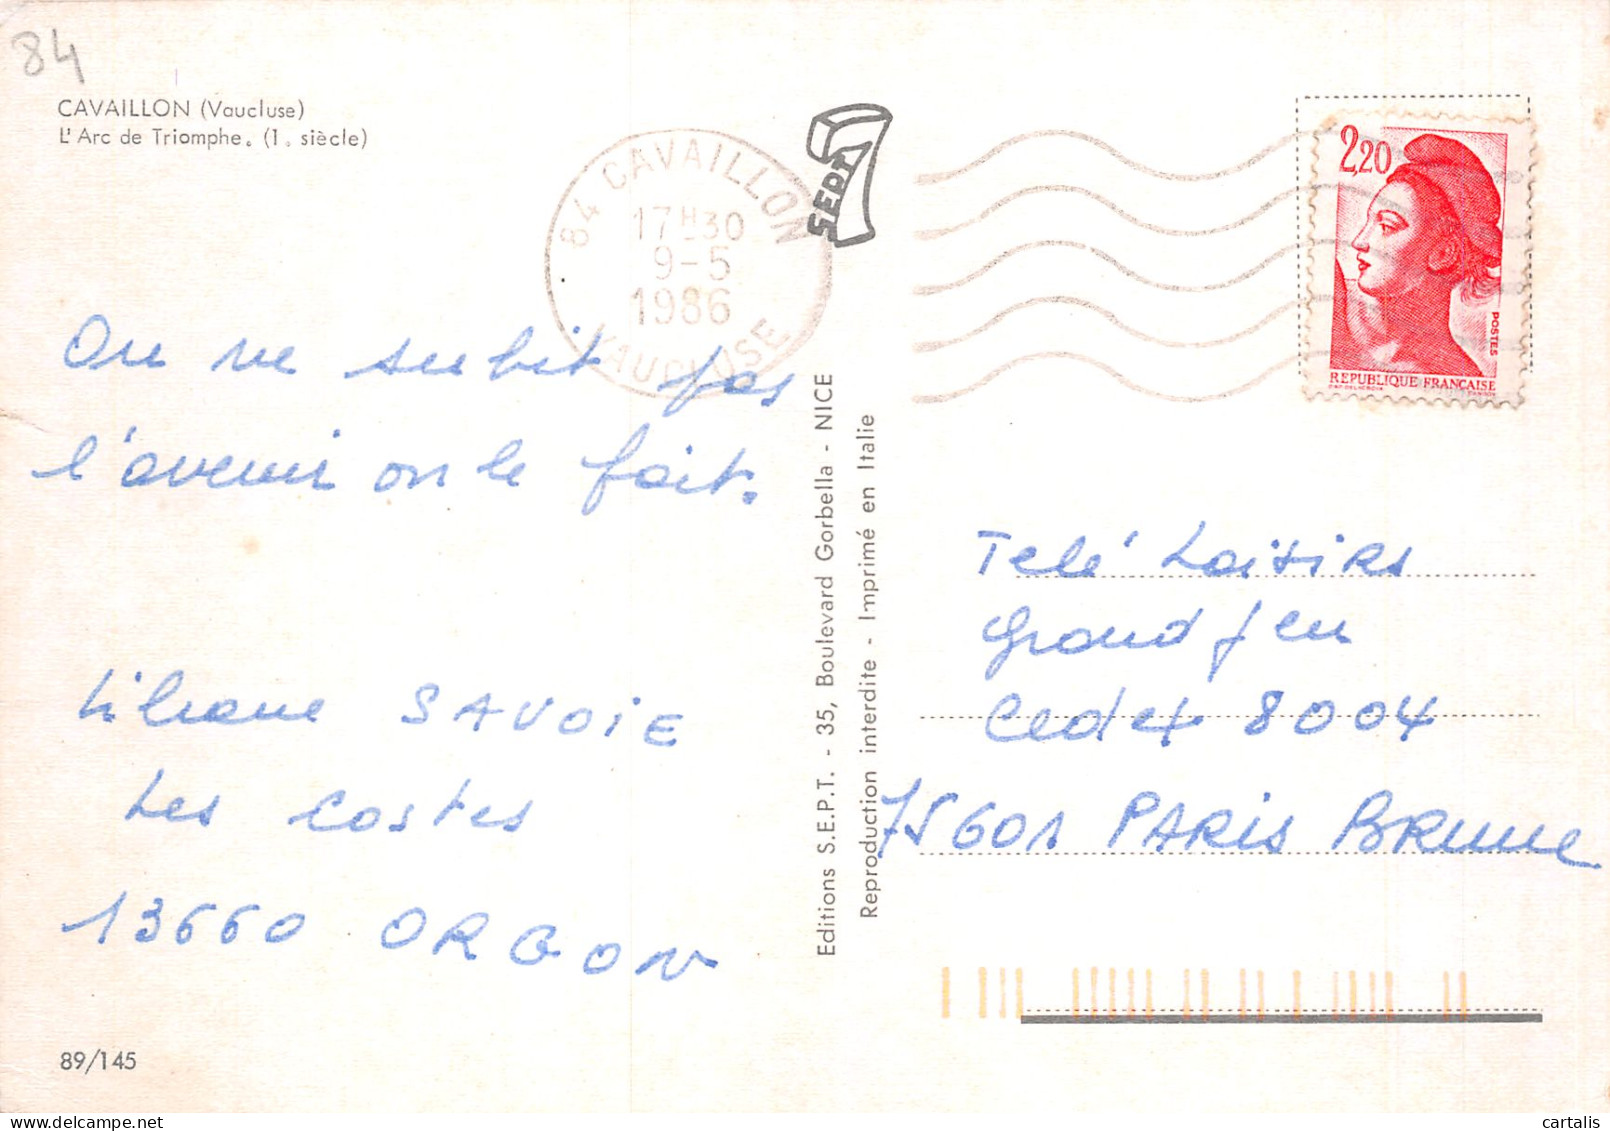 84
CAVAILLON (Vaucluse)
L'Arc de Triomphe. (1. siècle)
84 CAVAILLON
17H30
9-5
1986
VAUCLUSE
SEPT
2,20
POSTES
REPUBLIQUE FRANÇAISE
On ne subit pas
l'avenir on le fait.
Liliane SAVOIE
Les Costes
13660 ORGON
Editions S.E.P.T. - 35, Boulevard Gorbella - NICE
Reproduction interdite - Imprimé en Italie
Télé Loisirs
grand jeu
Cedex 8004
75601 PARIS BRUNE
89/145
cartalis